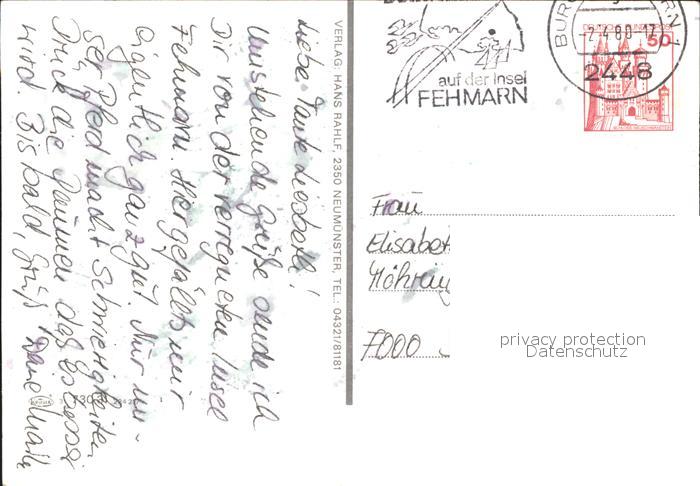 Liebe Tante Liesbeth!
Umstehende Grüße sende ich
Dir von der verregneten Insel
Fehmarn. Hier gefällts mir
eigentlich ganz gut. Nur un-
ser Pferd macht Schwierigkeiten.
Drück die Daumen das es besser
wird. Bis bald, Gruß
VERLAG: HANS RAHLF, 2350 NEUMÜNSTER, TEL.: 04321/81181
auf der Insel
FEHMARN
BURG
1
-2.4.80-17
2448
DEUTSCHE BUNDESPOST
50
Frau
Elisabet
Möhring
7000
privacy protection
Datenschutz